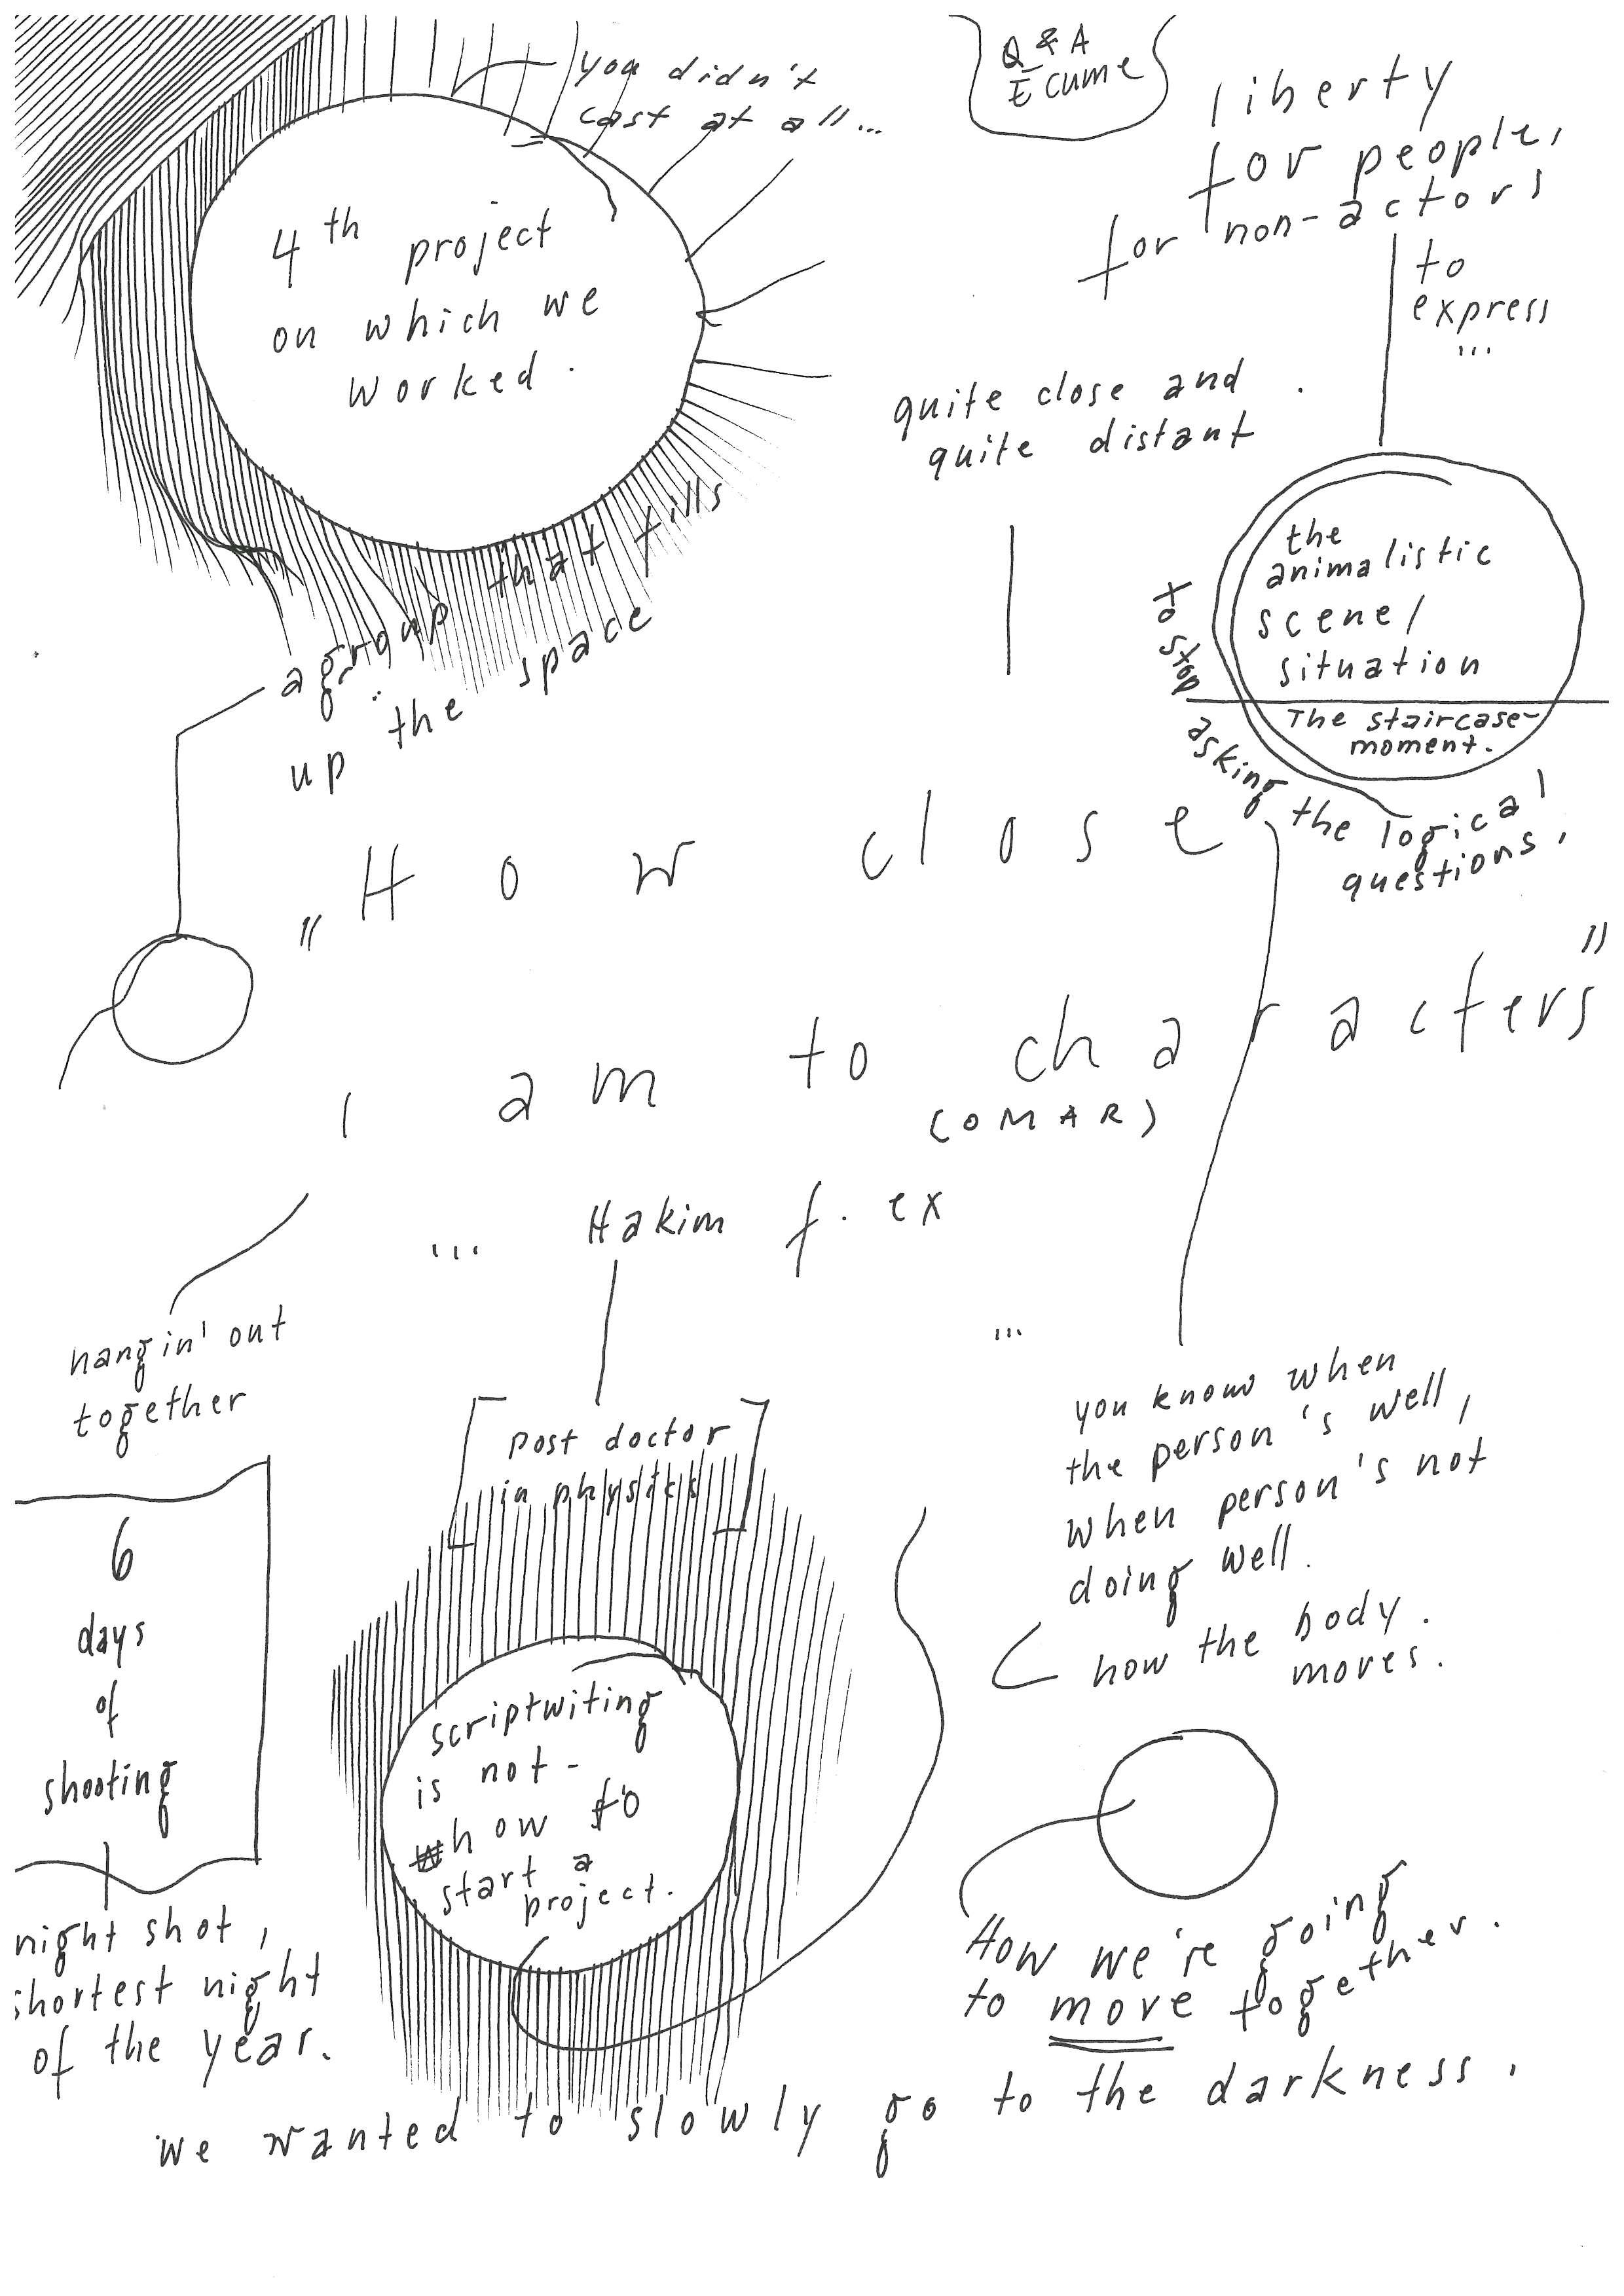 you didn't
cast at all...
Q & A
Ecume
liberty
for people,
for non-actors
to
express
...
4th project
on which we
worked.
quite close and
quite distant
the
animalistic
scene/
situation
The staircase-
moment.
to stop asking the logical
questions,
a group that fills
up the space
„How close
I am to characters"
(OMAR)
... Hakim f. ex
...
hangin' out
together
Post doctor
in physics
you know when
the person's well,
when person's not
doing well.
how the body.
moves.
6
days
of
shooting
scriptwiting
is not-
how to
start a
project.
night shot,
shortest night
of the year.
How we're going
to move together.
we wanted to slowly go to the darkness.